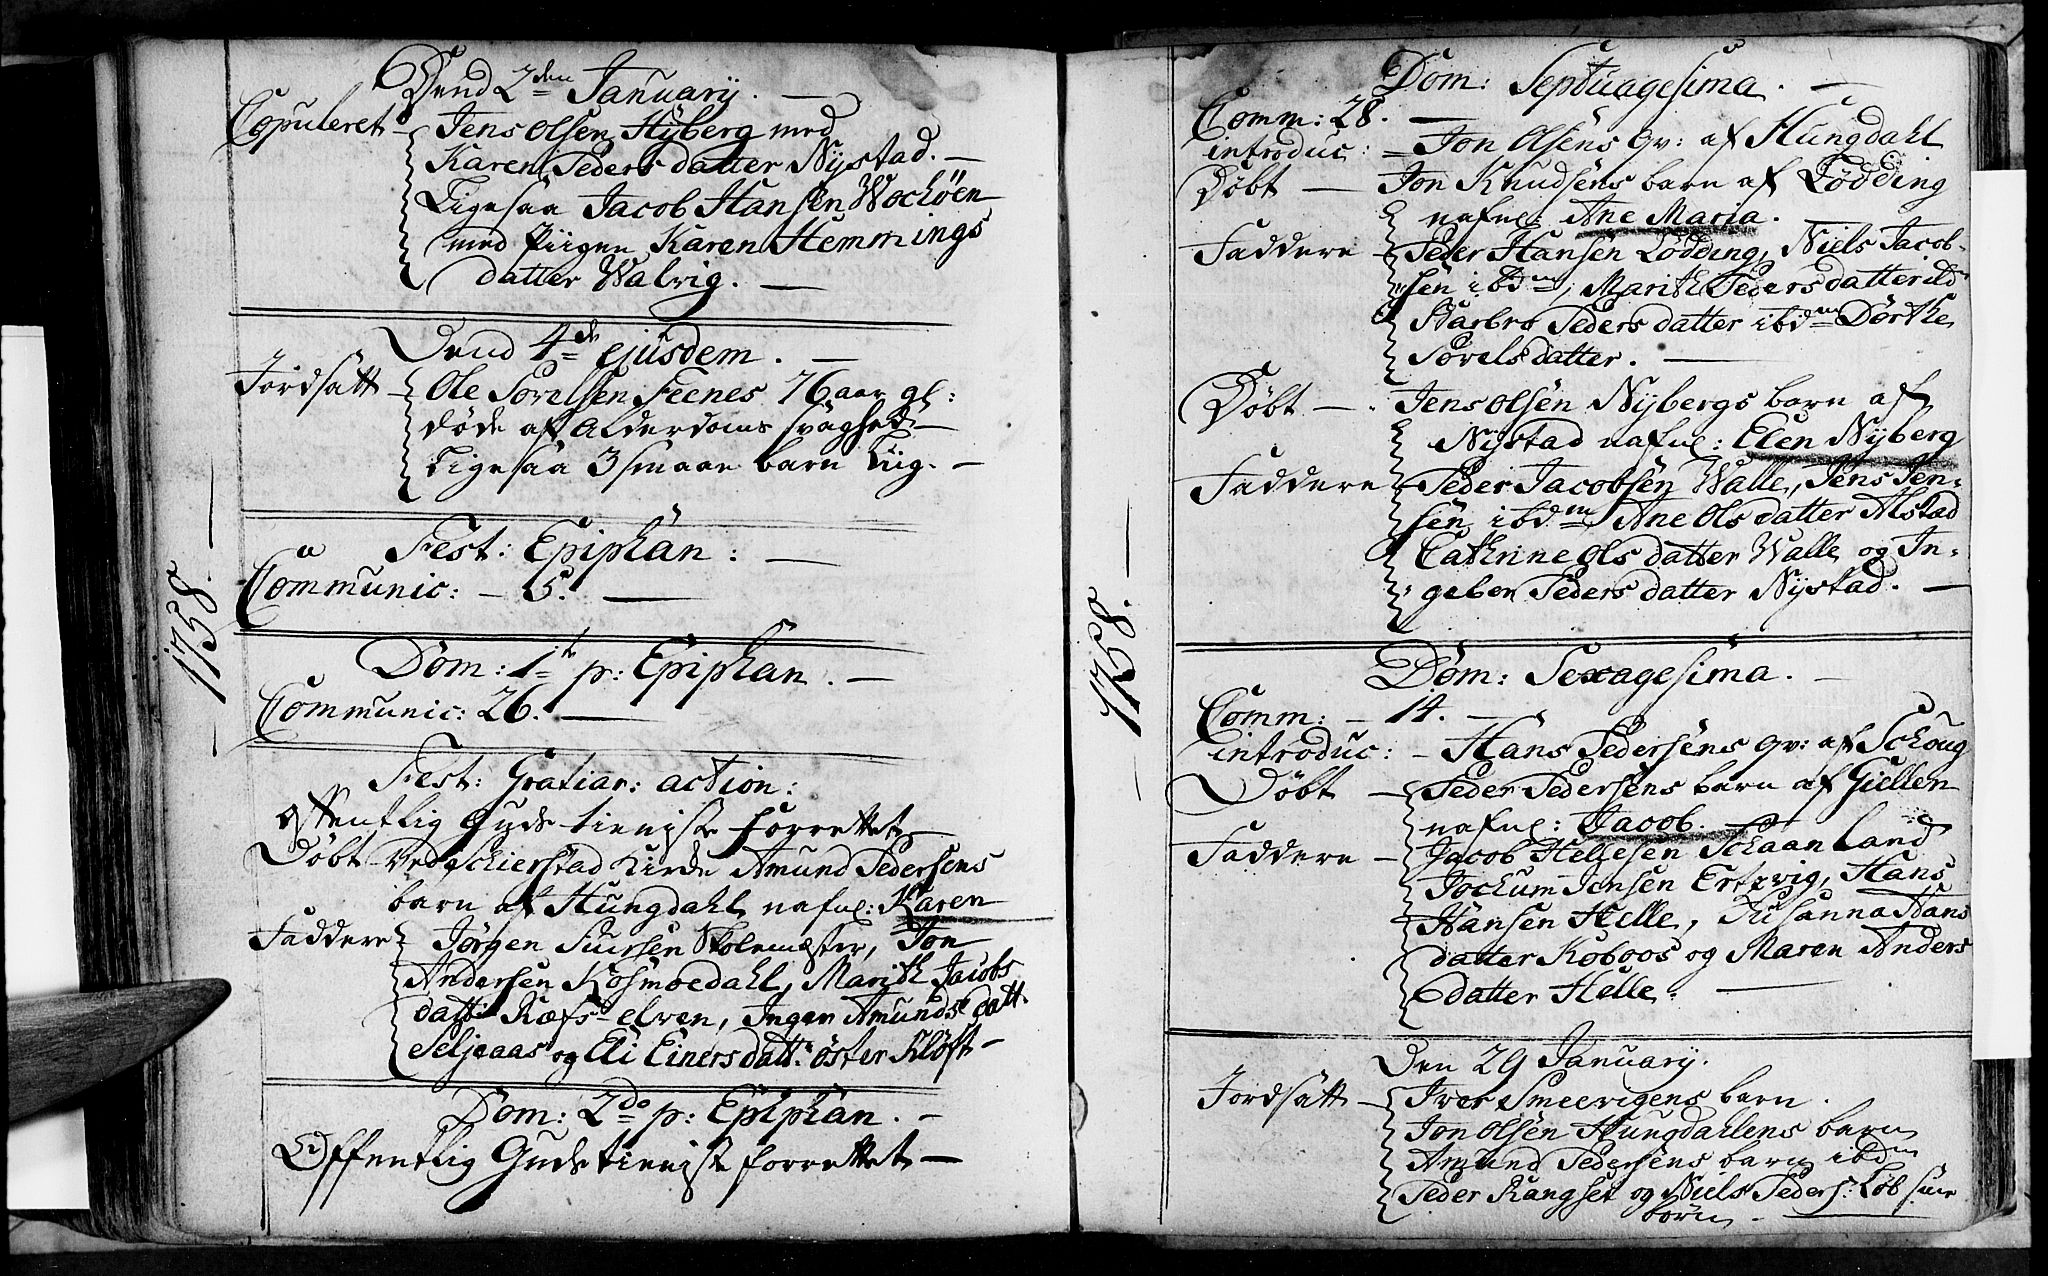 1758.
Dend 2den January.
Copuleret - Jens Olsen Nyberg med
Karen Peders datter Nystad. -
Ligesaa Jacob Hansen Wochöen
med Piigen Karen Hemmings
datter Walvig. -
Dend 4de ejusdem. -
Jordsatt - Ole Sorelsen Feenes 76 aar gl:
döde af Alderdoms svaghed -
Ligesaa 3 smaae barn Liig. -
Fest: Epiphan: -
Communic: - 5. -
Dom: 1te p: Epiphan. -
Communic: 26. -
Fest: Gratiar: action:
Offentlig Guds tieniste forrettet
Döbt - Ved Schierstad Kirche Amund Pedersens
barn af Hungdahl nafnl: Karen
Faddere Jörgen Siursen Skolemester, Jon
Andersen Kosmoedahl, Marith Jacobs
datt: Ræfs-elven, Inger Amunds datt.
Seljeaas og Eli Einersdatt: öster Klöft -
Dom: 2do p: Epiphan. -
Offentlig Guds tieniste forrettet -
1758.
Dom: Septuagesima. -
Comm: 28. -
introduc: = Jon Olsens qv: af Hungdahl
Döbt - Jon Knudsens barn af Lödding
nafnl: Ane Maria.
Faddere - Peder Hansen Lödding, Niels Jacob-
sen ibdm, Marith Peders datter ibd
Barbro Peders datter ibdm Dorthe
Sorelsdatter. -
Döbt - Jens Olsen Nybergs barn af
Nystad nafnl: Elen Nyberg
Faddere - Peder Jacobsen Walle, Jens Jen=
sen ibdm Ane Ols datter Alstad
Cathrine Ols datter Walle og In=
gebor Peders datter Nystad. -
Dom: Sexagesima. -
Comm: - 14. -
introduc: - Hans Pedersens qv: af Schoug
Döbt - Peder Pedersens barn af Giellen
nafnl: Jacob. -
Faddere - Jacob Helgesen Schaanland
Jochum Jensen Ertzvig, Hans
Hansen Helle, Susanna Hans
datter Koboos og Maren Anders
datter Helle. -
Den 29 January.
Jordsatt - Iver Smeevigens barn.
Jon Olsen Hungdahlens barn
Amund Pedersens barn ibdm
Peder Rangset og Niels Peders: Löb sine
börn. -